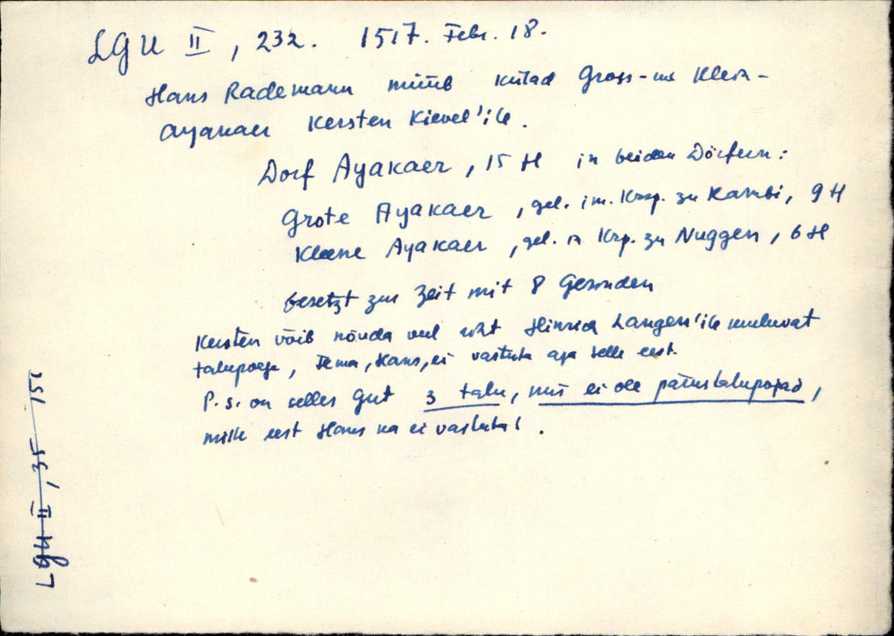 LGU II, 232. 1517. Febr. 18.
Hans Rademann müüb külad Gross- und Klein-
Ayakaer Kersten Kievel'ile.
Dorf Ayakaer, 15 H in beiden Dörfern:
Grote Ayakaer, gel. im Krsp. zu Kambi, 9 H
Kleene Ayakaer, gel. in Krp. zu Nuggen, 6 H
besetzt zur Zeit mit 8 Gesinden
Kersten võib nõuda veel Hinrich Langen'ile kuuluvat
talupoega, Tema, Hans, ei vastuta aga selle eest.
P.s. on selles Gut 3 talu, mis ei ole päristalupojad,
mille eest Hans ka ei vastuta!
LGU II, 35 151